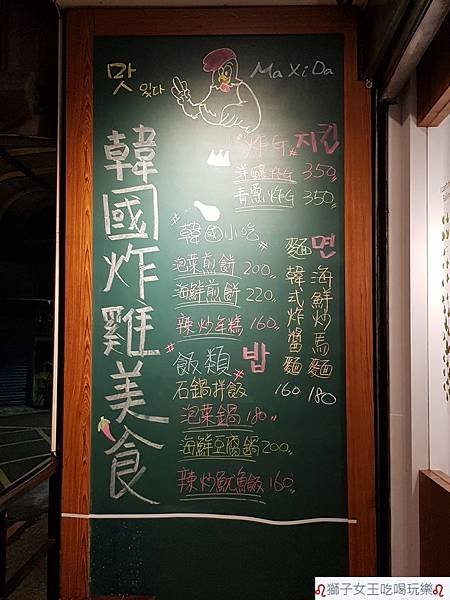 맛있다
MaXiDa
韓國炸雞美食
炸G 치킨
洋釀炸G 350
青蔥炸G 350
韓國小吃
泡菜煎餅 200
海鮮煎餅 220
辣炒年糕 160
麵 면
海鮮炒馬麵 180
韓式炸醬麵 160
飯類 밥
石鍋拌飯
泡菜鍋 180
海鮮豆腐鍋 200
辣炒魷魚飯 160
獅子女王吃喝玩樂